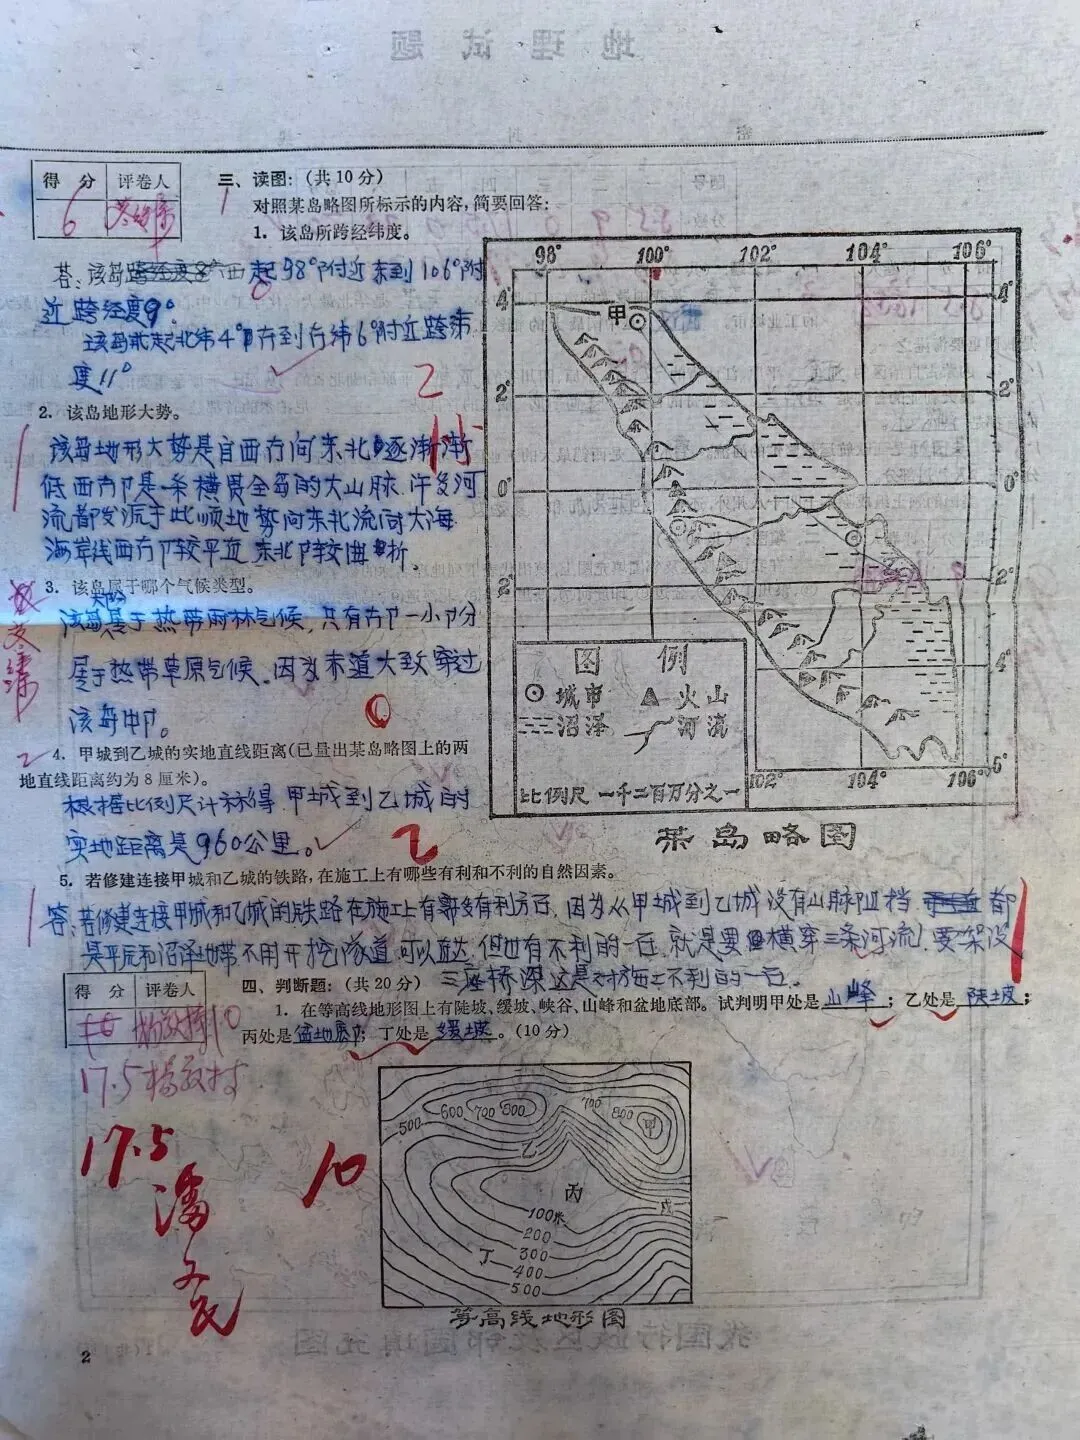 地理试题
得分 评卷人
6
三、读图：（共10分）
对照某岛略图所标示的内容，简要回答：
1. 该岛所跨经纬度。
答：该岛西起98°附近东到106°附
近跨经度9°
该岛北起北纬4°到南纬6°附近跨纬
度11°
2
2. 该岛地形大势。
该岛地形大势是自西南向东北逐渐渐
低西南部是一条横贯全岛的大山脉.许多河
流都发源于此顺地势向东北流向大海
海岸线西南部较平直.东北部较曲折。
3. 该岛属于哪个气候类型。
该岛大部属于热带雨林气候.只有南部一小部分
属于热带草原气候、因为赤道大致穿过
该岛中部。
0
4. 甲城到乙城的实地直线距离（已量出某岛略图上的两
地直线距离约为8厘米）。
根据比例尺计算得甲城到乙城的
实地距离是960公里。
2
5. 若修建连接甲城和乙城的铁路，在施工上有哪些有利和不利的自然因素。
答：若修建连接甲城和乙城的铁路在施工上有有利方面.因为从甲城到乙城没有山脉阻挡都
是平原和沼泽地带不用开挖隧道可以直达.但也有不利的一面.就是要横穿三条河流！要架设
三座桥梁这是对施工不利的一面.
98° 100° 102° 104° 106°
4° 4°
甲
2° 2°
0° 0°
2° 2°
4°
6°
102° 104° 106°
图例
城市 火山
沼泽 河流
比例尺 一千二百万分之一
某岛略图
得分 评卷人
四、判断题：（共20分）
1. 在等高线地形图上有陡坡、缓坡、峡谷、山峰和盆地底部。试判明甲处是山峰；乙处是陡坡；
丙处是盆地底部；丁处是缓坡。（10分）
17.5
17.5
10
500 600 700 800 700 800 甲
乙
丙
戊
丁
100米
200
300
400
500
等高线地形图
我国行政区及邻国填充图
2